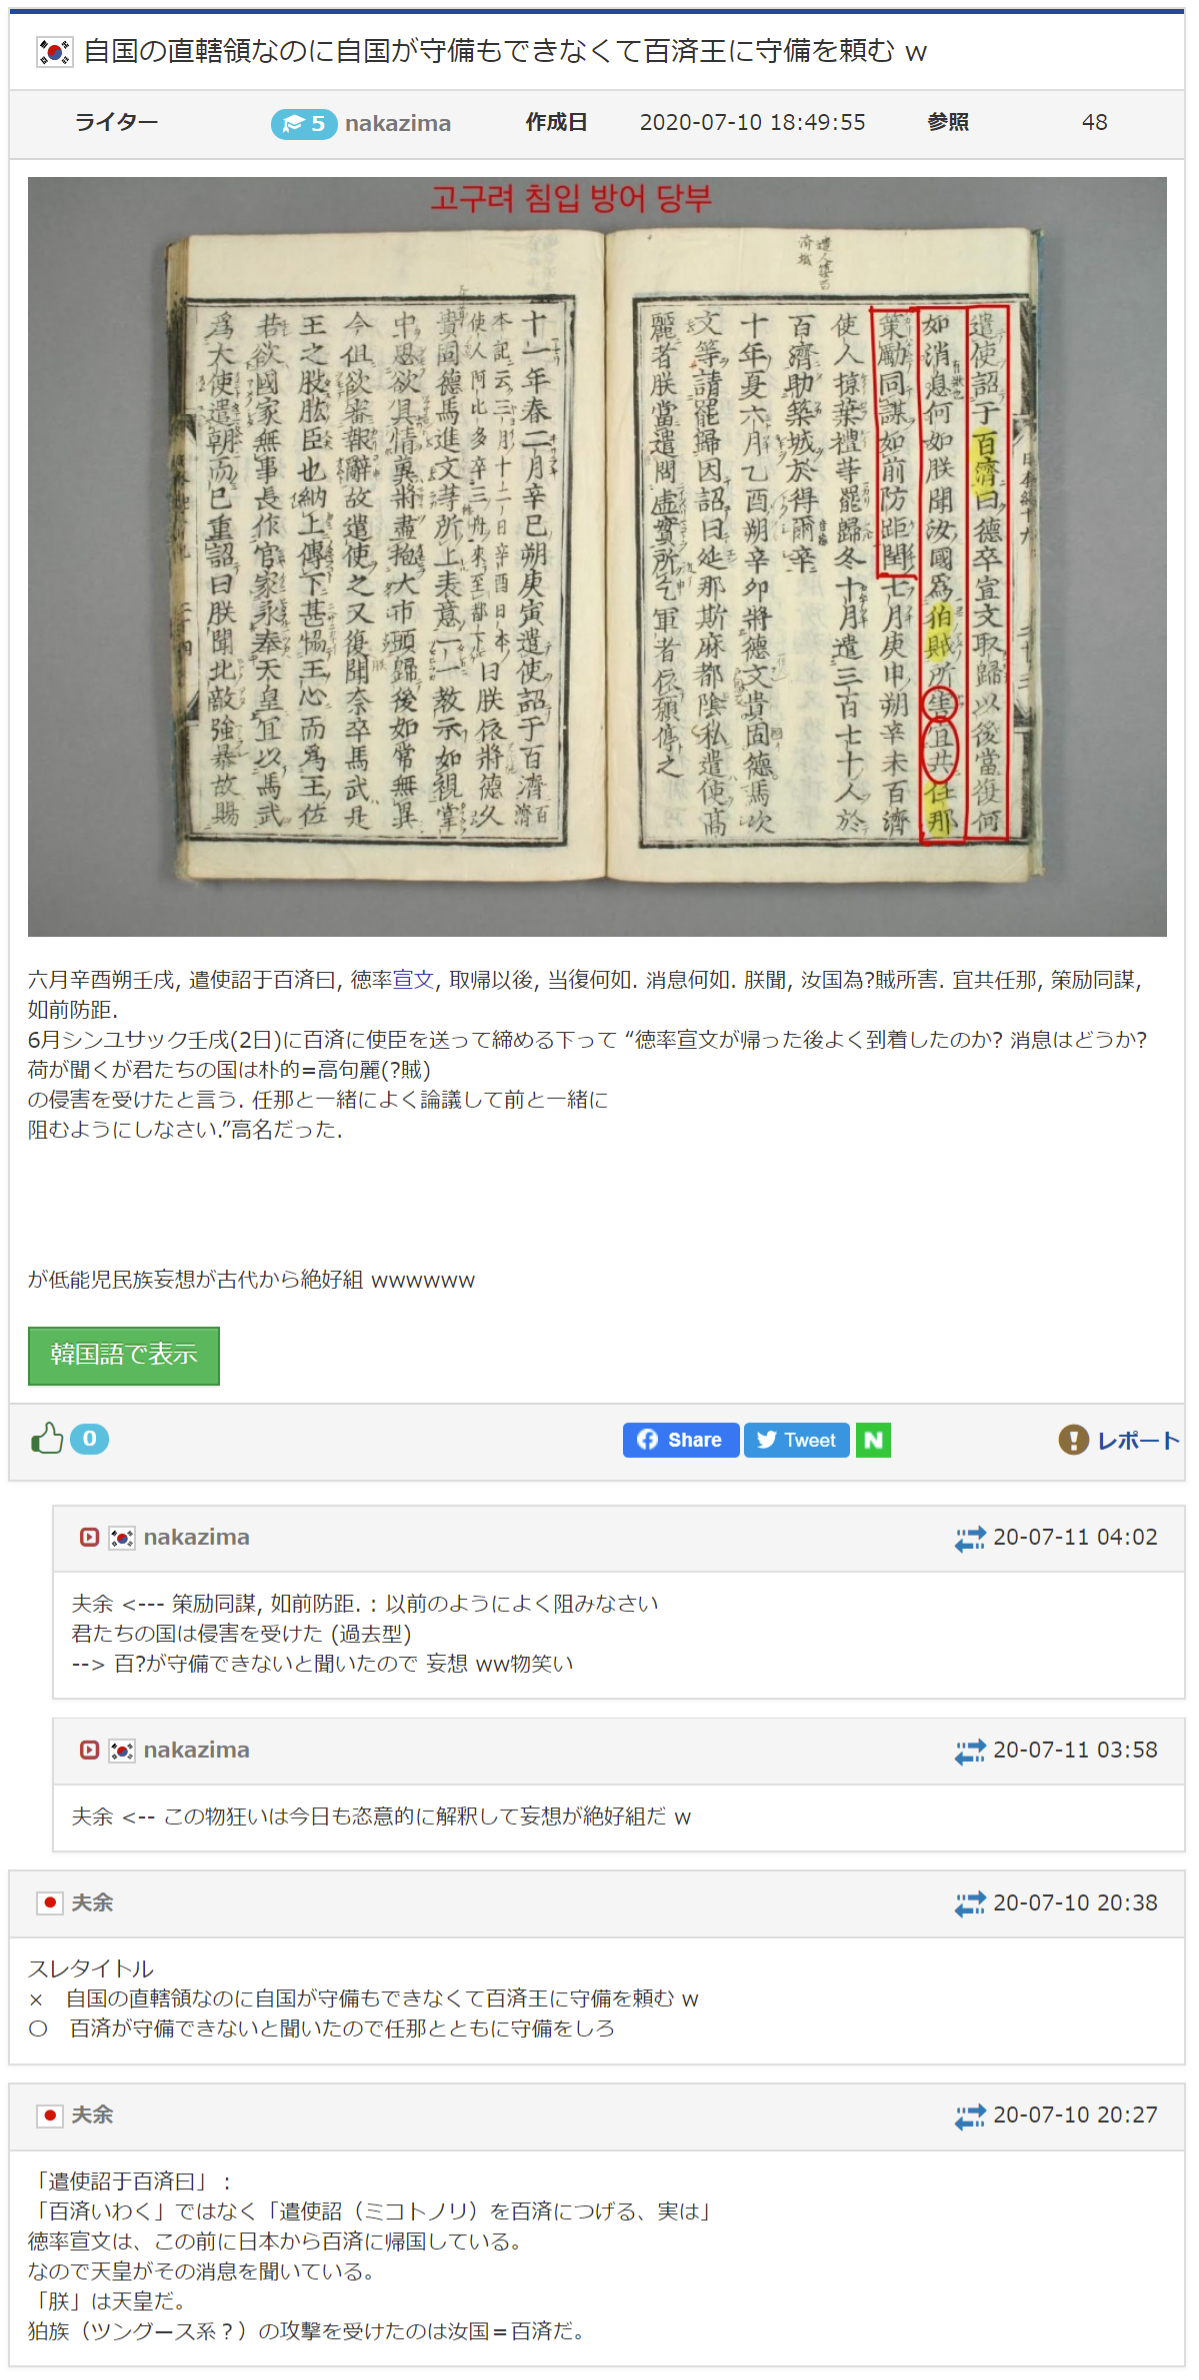 自国の直轄領なのに自国が守備もできなくて百済王に守備を頼む w
ライター 5 nakazima 作成日 2020-07-10 18:49:55 参照 48
고구려 침입 방어 당부
遣使詔于百濟曰德率宣文取歸以後當復何
如消息何如朕聞汝國爲狛賊所害宜共任那
策勵同謀如前防距閏七月庚申朔辛未百濟
使人掠葉禮等罷歸冬十月遣三百七十人於
百濟助築城於得爾辛
十年夏六月乙酉朔辛卯將德文貴固德馬次
文等請罷歸因詔曰延那斯麻都陰私遣使高
麗者朕當遣問虛實所乞軍者依願停之
十一年春二月辛巳朔庚寅遣使詔于百濟百濟
本記云三月十二日辛酉日本
使人阿比多率三舟來至都下曰朕依將德久
貴固德馬進文等所上表意一一教示如視掌
中思欲具情冀將盡抱大市頭歸後如常無異
今但欲審報辭故遣使之又復聞奈率馬武是
王之股肱臣也納上傳下甚恊王心而爲王佐
若欲國家無事長作官家永奉天皇宜以馬武
爲大使遣朝而已重詔曰朕聞北敵強暴故賜
六月辛酉朔壬戌, 遣使詔于百済曰, 徳率宣文, 取帰以後, 当復何如. 消息何如. 朕聞, 汝国為?賊所害. 宜共任那, 策励同謀,
如前防距.
6月シンユサック壬戌(2日)に百済に使臣を送って締める下って “徳率宣文が帰った後よく到着したのか? 消息はどうか?
荷が聞くが君たちの国は朴的=高句麗(?賊)
の侵害を受けたと言う. 任那と一緒によく論議して前と一緒に
阻むようにしなさい.”高名だった.
が低能児民族妄想が古代から絶好組 wwwwww
韓国語で表示
0 Share Tweet N レポート
nakazima 20-07-11 04:02
夫余 <--- 策励同謀, 如前防距. : 以前のようによく阻みなさい
君たちの国は侵害を受けた (過去型)
--> 百?が守備できないと聞いたので 妄想 ww物笑い
nakazima 20-07-11 03:58
夫余 <-- この物狂いは今日も恣意的に解釈して妄想が絶好組だ w
夫余 20-07-10 20:38
スレタイトル
×　自国の直轄領なのに自国が守備もできなくて百済王に守備を頼む w
〇　百済が守備できないと聞いたので任那とともに守備をしろ
夫余 20-07-10 20:27
「遣使詔于百済曰」：
「百済いわく」ではなく「遣使詔（ミコトノリ）を百済につげる、実は」
徳率宣文は、この前に日本から百済に帰国している。
なので天皇がその消息を聞いている。
「朕」は天皇だ。
狛族（ツングース系？）の攻撃を受けたのは汝国＝百済だ。